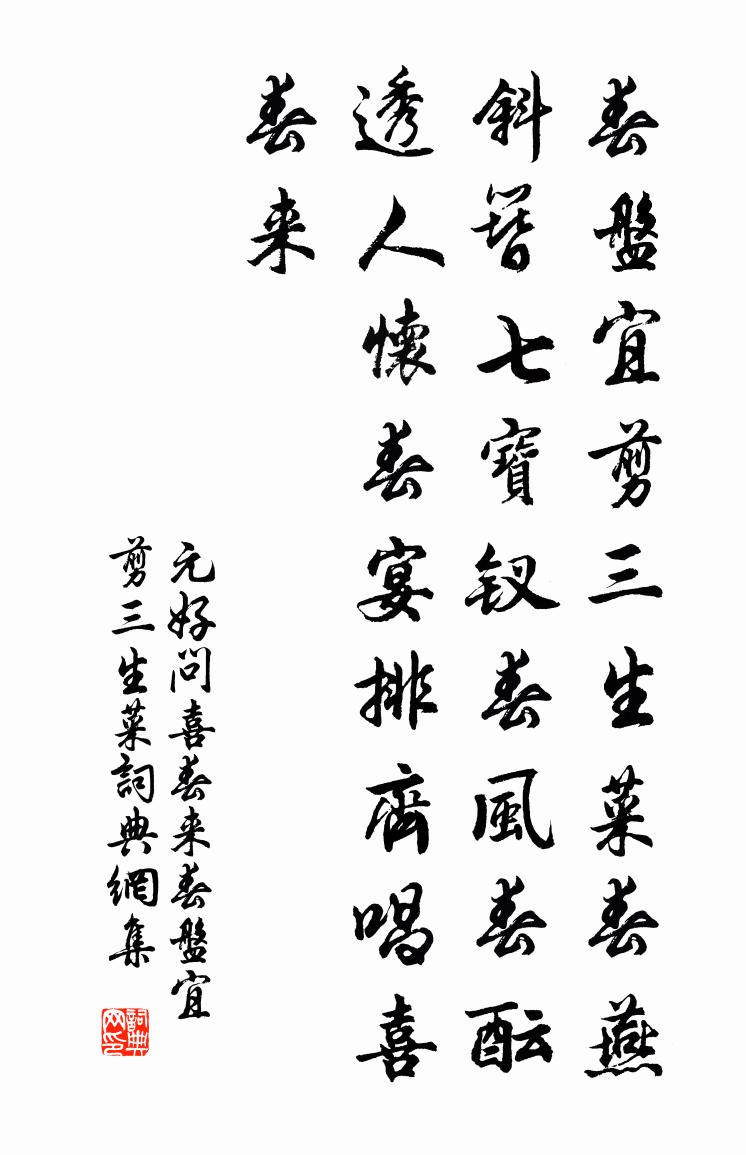 春盤宜剪三生菜春燕
斜簪七寶釵春風春酝
透人懷春宴排齊唱喜
春来
元好问喜春来春盤宜
剪三生菜詞典網集
詞典网印